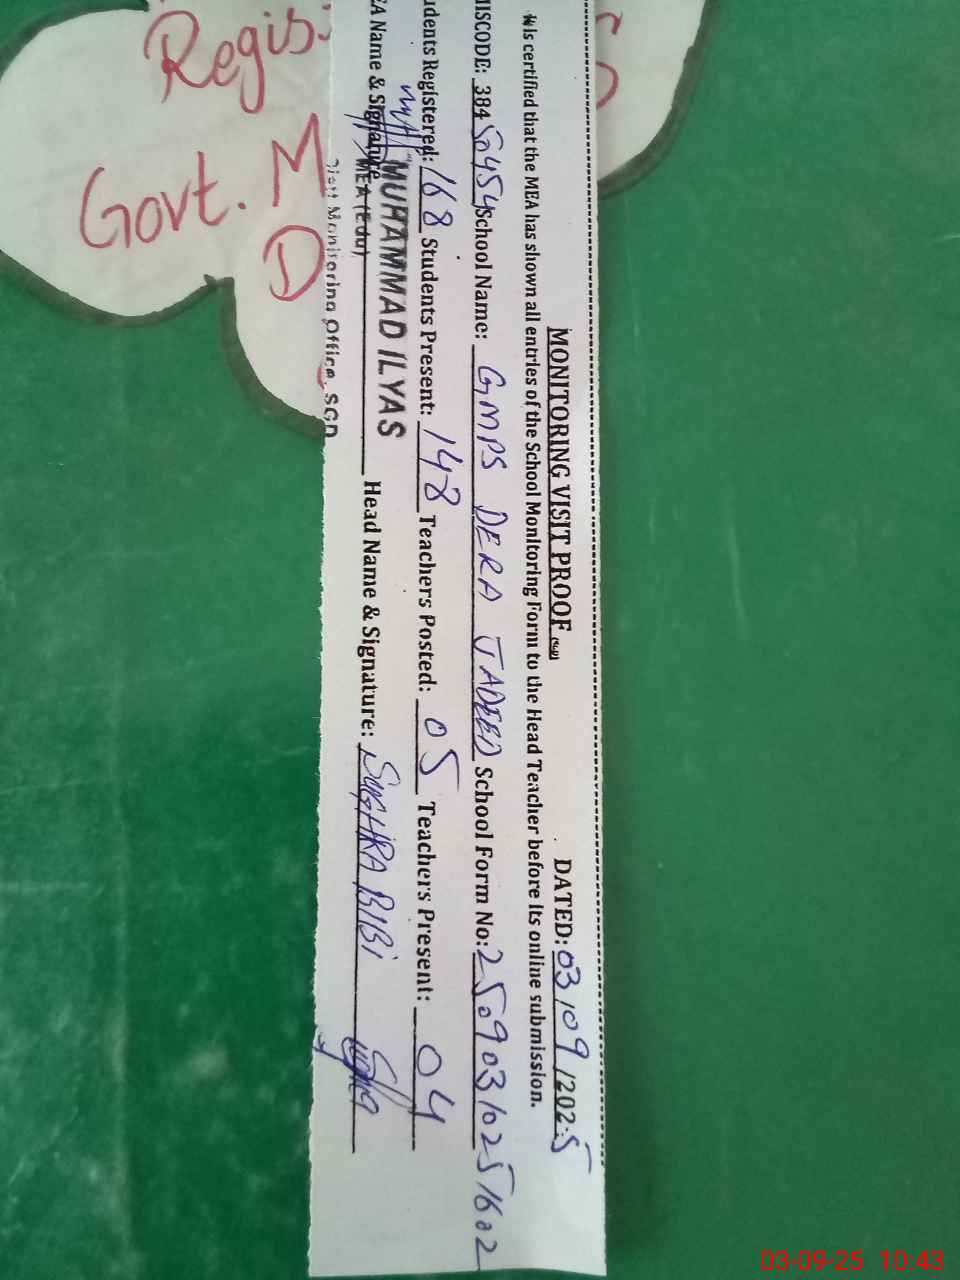 MONITORING VISIT PROOF DATED: 03/09/2025
is certified that the MEA has shown all entries of the School Monitoring Form to the Head Teacher before its online submission.
MISCODE: 384 50454 School Name: GMPS DERA JADEED School Form No: 2509031025 1602
udents Registered: 168 Students Present: 148 Teachers Posted: 05 Teachers Present: 04
EA Name & Signature Head Name & Signature: SUGHRA BIBI
MUHAMMAD ILYAS
MEA (Edu)
Monitoring Office, SGD
Regis
Govt. M
D
03-09-25 10:43